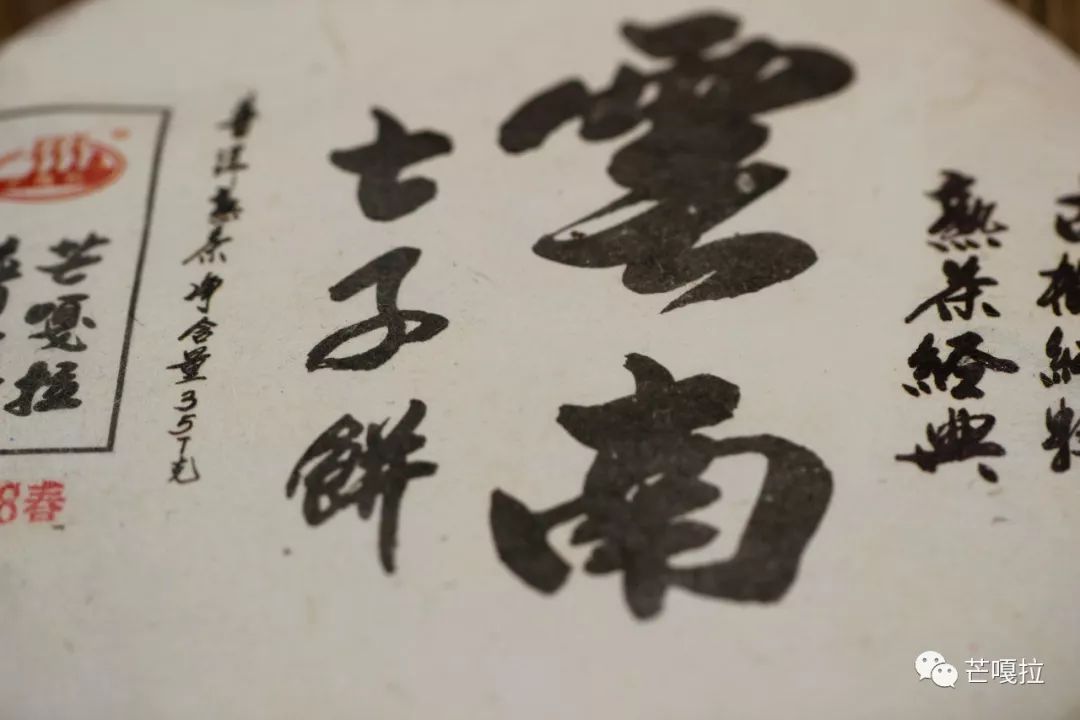 熟茶经典
雲南
七子餅
普洱熟茶净含量357克
芒嘎拉
8春
芒嘎拉